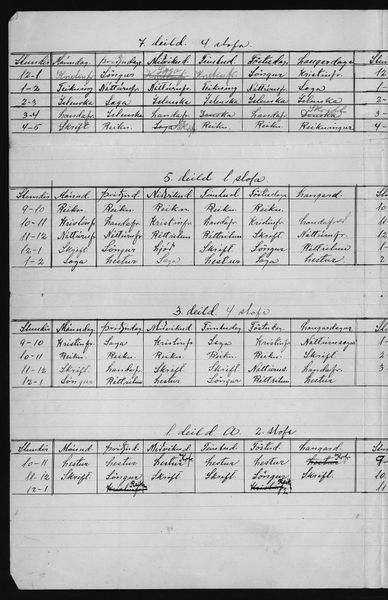 7. deild. 4 stofa.
Stundir Mánudag. Þriðjudag. Miðvikud. Fimtud. Föstudag. Laugardaga
12-1 Kristinfr. Söngur Saga Kristinfr. Söngur Kristinfr. 12
1-2 Teikning Náttúrufr. Náttúrufr. Teikning Náttúrufr. Saga 1-
2-3 Íslenska Saga Íslenska Íslenska Íslenska Íslenska 2-
3-4 Landafr. Íslenska Landafr. Danska Landafr. Skrift 3-
4-5 Skrift Reikn. Saga Reikn. Reikn. Reikningur 4-
5. deild. 1 stofa.
Stundir Mánud. Þriðjud. Miðvikud. Fimtud. Föstudag. Laugard.
9-10 Reikn. Reikn. Reikn. Reikn. Reikn. 11
10-11 Kristinfr. Landafr. Kristinfr. Landafr. Kristinfr. Landafr. 10
11-12 Náttúrufr. Náttúrufr. Réttritun Réttritun Skrift Náttúrufr. 11
12-1 Skrift Söngur Ljóð Skrift Söngur Réttritun 12
1-2 Saga Lestur Saga Lestur Saga Lestur 2
3. deild 4 stofa
Stundir Mánudag. Þriðjudag. Miðvikud. Fimtudag Föstudag. Laugardagur
9-10 Kristinfr. Saga Kristinfr. Saga Kristinfr. Náttúrusaga 1-
10-11 Reikn. Reikn. Reikn. Reikn. Reikn. Skrift. 2-
11-12 Skrift. Landafr. Skrift. Skrift Náttúrus. Landafr. 3-
12-1 Söngur Réttritun Lestur Söngur Réttritun Lestur
1 deild. A. 2. stofa
Stundir Mánud. Þriðjud. Miðvikud. Fimtud. Föstud. Laugard.
10-11 Lestur Lestur Lestur Lestur Lestur Lestur 9-
11-12 Skrift. Söngur Skrift Skrift. Söngur Skrift. 10
12-1 11